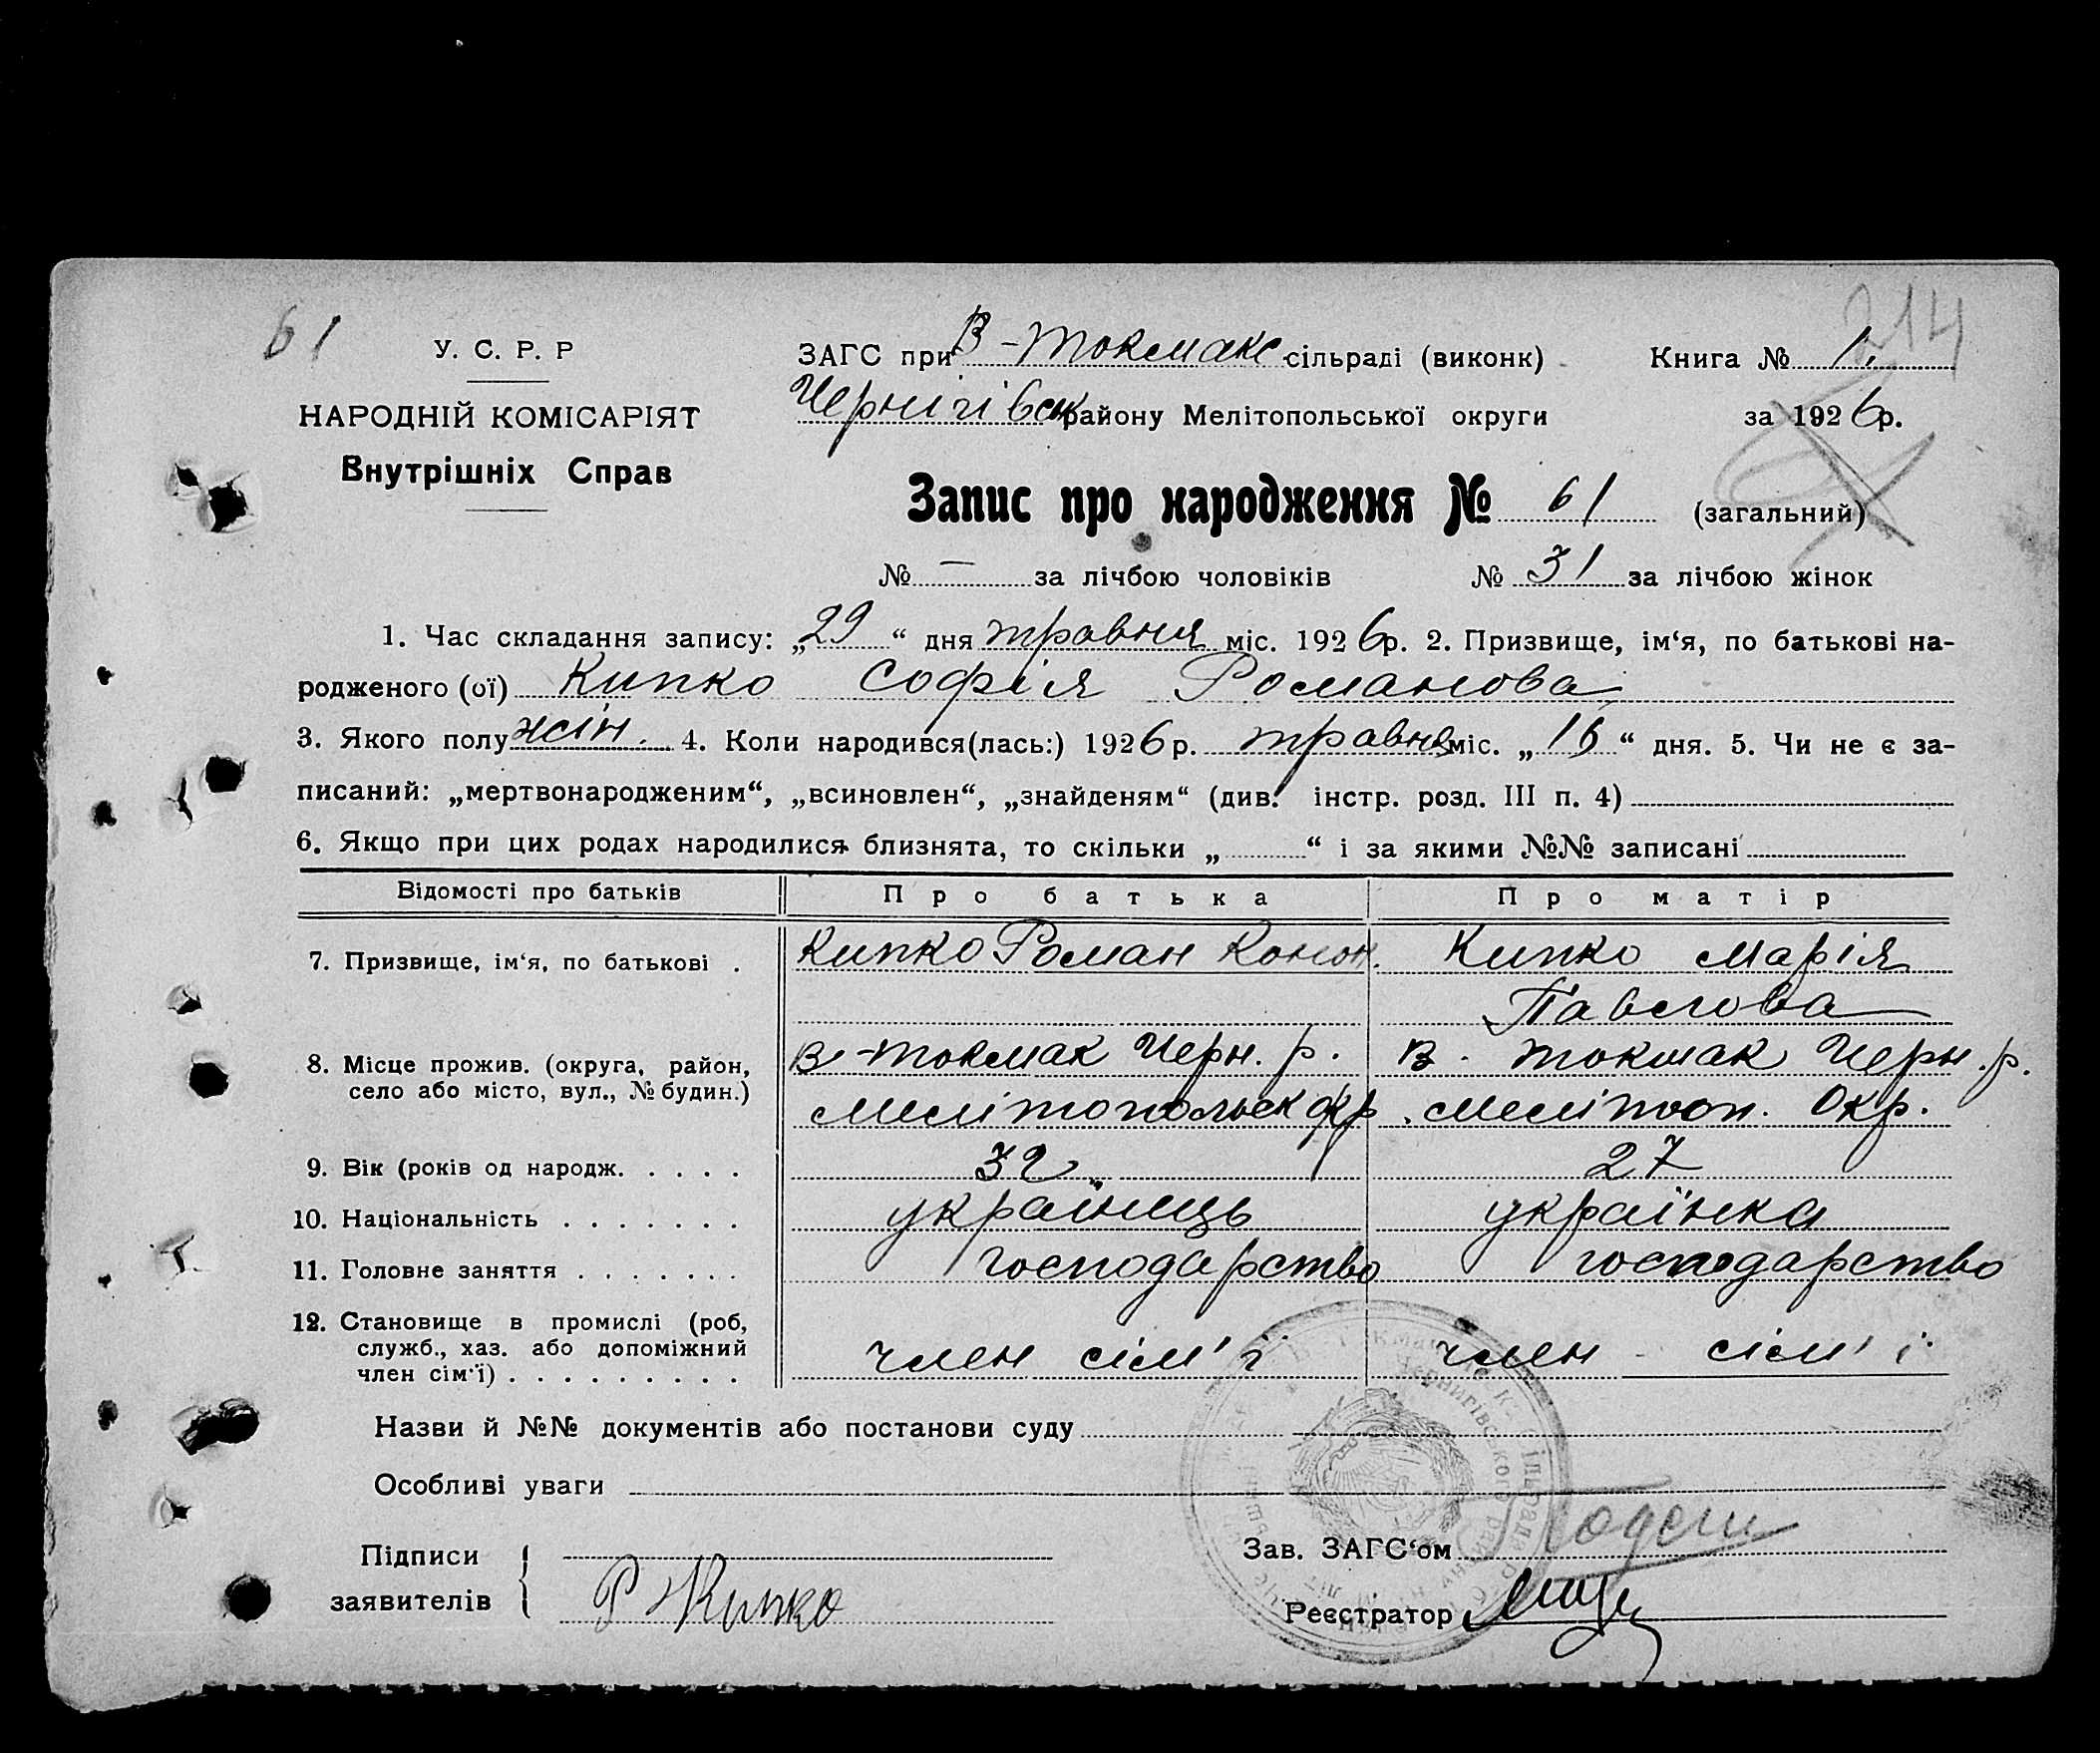 61
214
У. С. Р. Р
ЗАГС при В-Токмакс сільраді (виконк)
Книга № 1.
НАРОДНІЙ КОМІСАРІЯТ
Чернігівськ району Мелітопольської округи
за 1926 р.
Внутрішніх Справ
Запис про народження № 61 (загальний)
№ — за лічбою чоловіків № 31 за лічбою жінок
1. Час складання запису: „29“ дня травня міс. 1926 р. 2. Призвище, ім‘я, по батькові на-
родженого (ої) Кипко Софія Романова
3. Якого полу жін. 4. Коли народився(лась:) 1926 р. травня міс. „16“ дня. 5. Чи не є за-
писаний: „мертвонародженим“, „всиновлен“, „знайденям“ (див. інстр. розд. III п. 4)
6. Якщо при цих родах народилися близнята, то скільки „ “ і за якими №№ записані
Відомості про батьків Про батька Про матір
7. Призвище, ім‘я, по батькові . Кипко Роман Конон. Кипко Марія
Павлова
8. Місце прожив. (округа, район, В-Токмак Черн. р. В. Токмак Черн. р.
село або місто, вул., № будин.) Мелітопольськ Окр. Мелітоп. Окр.
9. Вік (років од народж. . . . . 32 27
10. Національність . . . . . . . українець українка
11. Головне заняття . . . . . . . господарство господарство
12. Становище в промислі (роб,
служб., хаз. або допоміжний член сім'ї член сім'ї
член сім‘ї) . . . . . . . . .
Назви й №№ документів або постанови суду
Особливі уваги
Підписи Зав. ЗАГС‘ом
заявителів Р Кипко Реєстратор